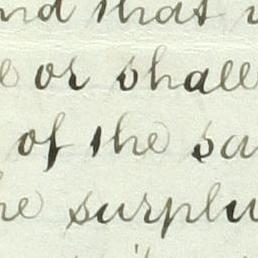 and that
or shall
of the
the surplu